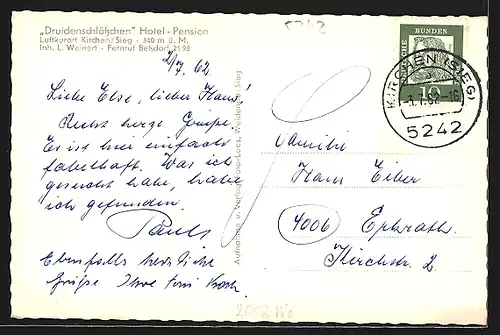 „Druidenschlößchen" Hotel-Pension
Luftkurort Kirchen/Sieg - 340 m ü. M.
Inh. L. Weinert - Fernruf Betzdorf 2198
5242
2/7. 62
Liebe Else, lieber Hans
Recht herzl. Grüße.
Es ist hier einfach
fabelhaft. Was ich
gesucht habe, habe
ich gefunden.
Pauls
Ebenfalls herzliche
Grüße Ihre
Aufnahme u. Verlag
DEUTSCHE BUNDESPOST
10
KIRCHEN (SIEG)
62-16
5242
Familie
Hans Eiber
4006 Erkrath
Kirchstr. 2